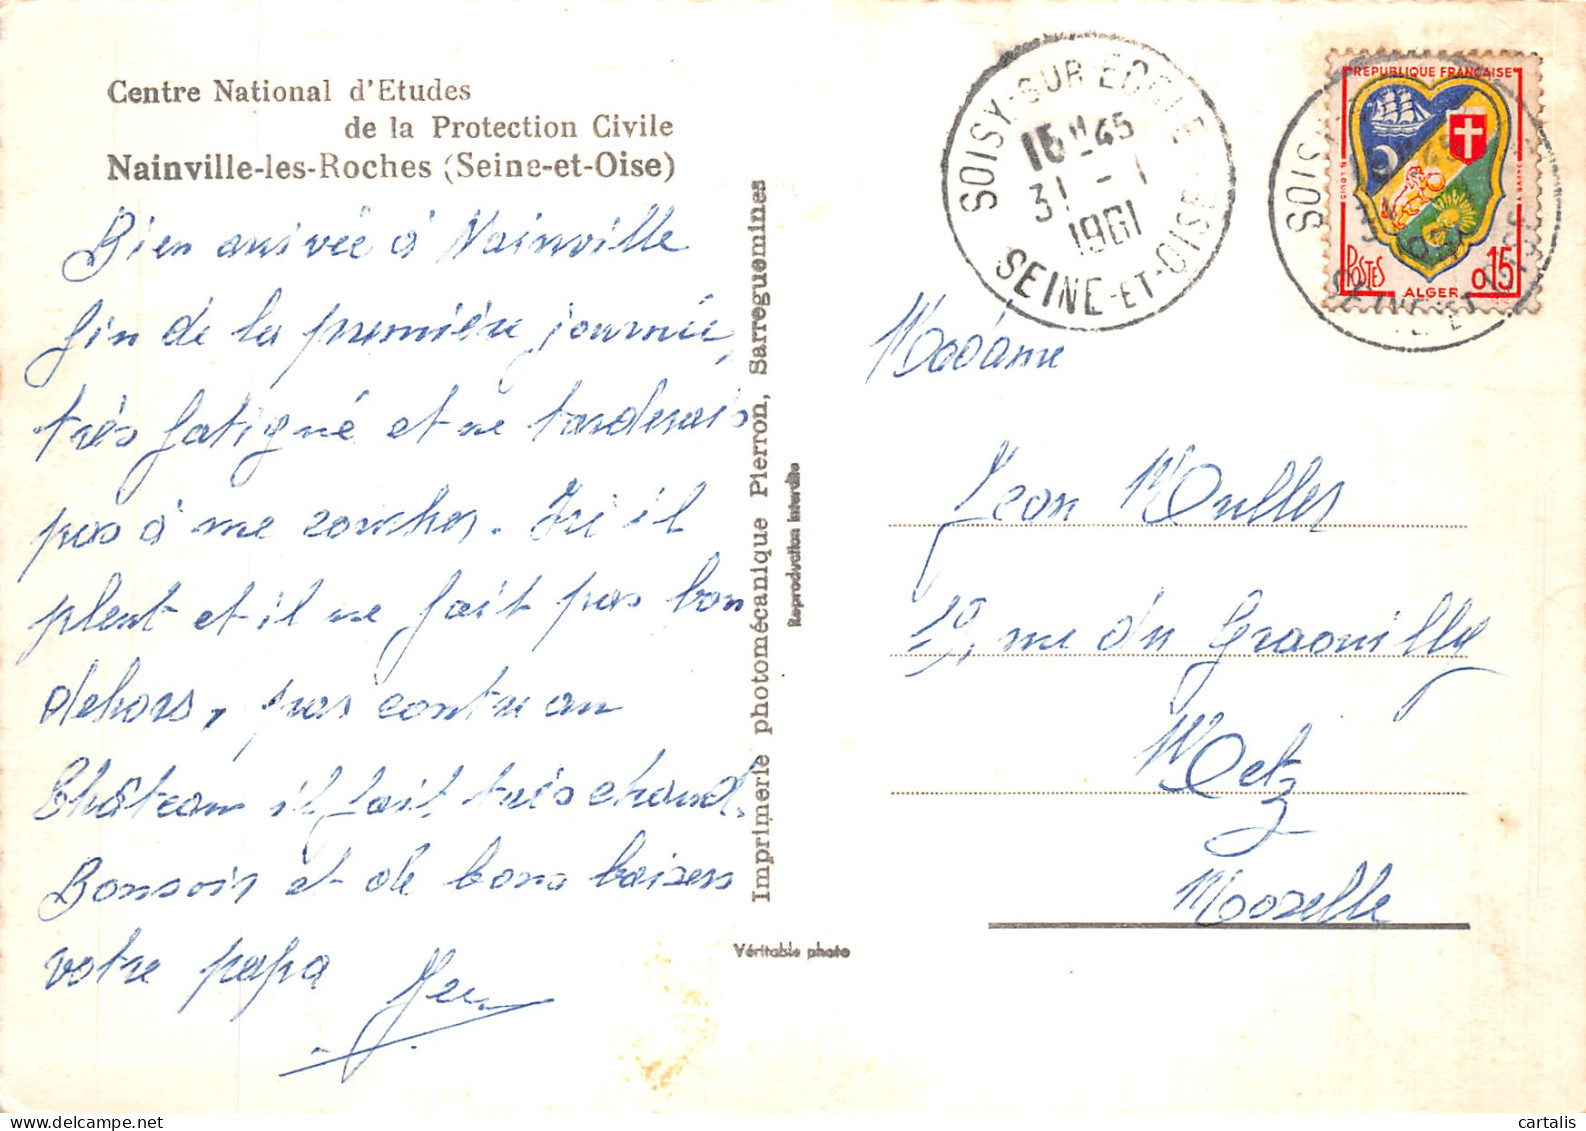 Centre National d'Etudes
de la Protection Civile
Nainville-les-Roches (Seine-et-Oise)
Bien arrivée à Nainville
fin de la première journée,
très fatigué et ne tarderais
pas à me coucher. Ici il
pleut et il ne fait pas bon
dehors, par contre au
Château il fait très chaud.
Bonsoir et de bons baisers
votre papa
Imprimerie photomécanique Pierron, Sarreguemines
Reproduction interdite
Véritable photo
SOISY-SUR-ECOLE
15H45
31 - 1
1961
SEINE-ET-OISE
REPUBLIQUE FRANÇAISE
POSTES
ALGER
0,15
SOISY
SEINE-ET-OISE
Madame
Jean Muller
19, rue du Graouilly
Metz
Moselle
cartalis